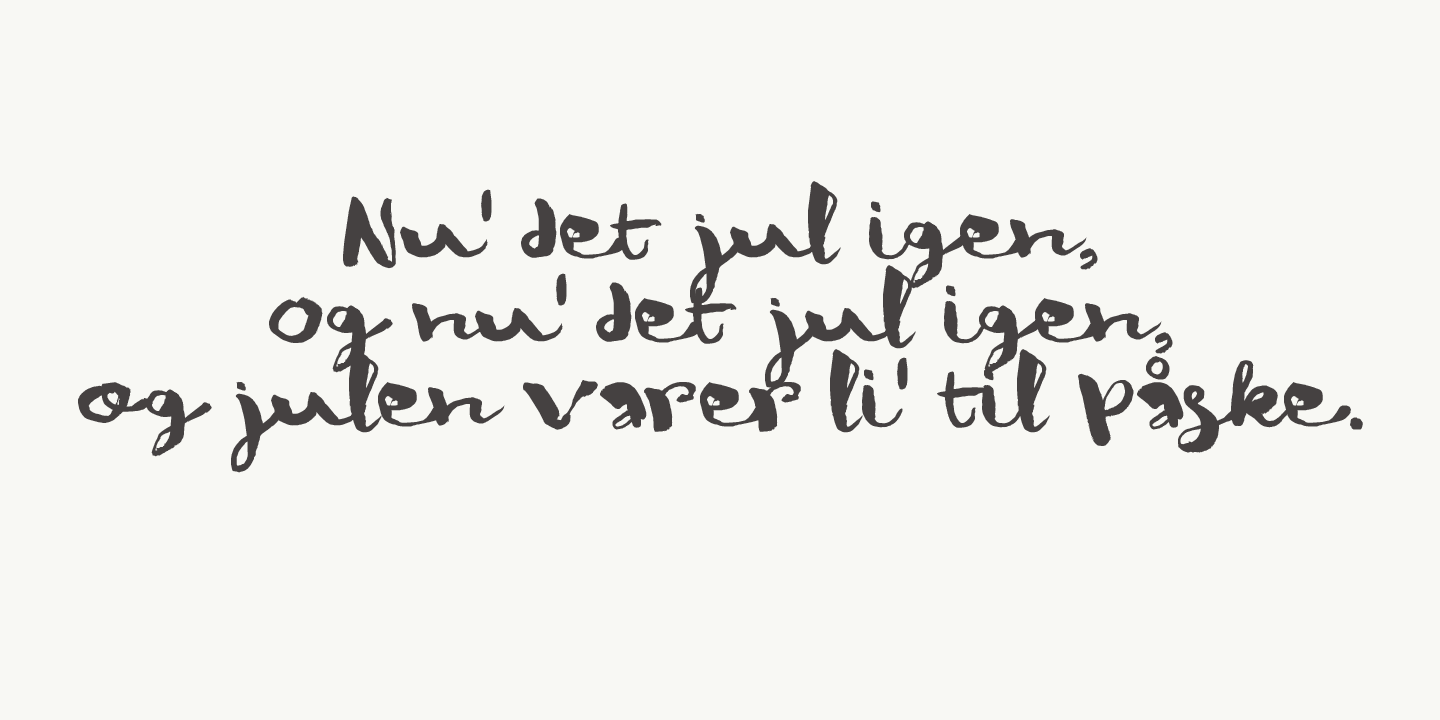 Nu' det jul igen,
og nu' det jul igen,
og julen varer li' til påske.